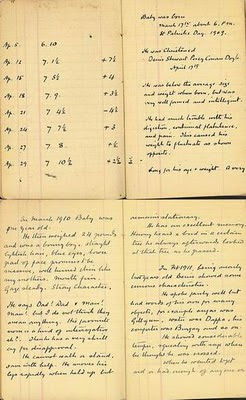 Ap. 5 6.10
Ap. 12 7. 1½ + 7½
Ap. 15 7 5½ + 4
Ap. 18 7. 9. + 3½
Ap. 21 7 4½ - 4½
Ap. 24 7 7½ + 3
Ap. 27 7 8. + ½
Ap. 29 7 10½ + 2½
Baby was born
March 17th about 6. P.M.
St Patricks Day. 1909.
He was Christened
Denis Stewart Percy Conan Doyle
April 17th
He was below the average size
and weight when born, but was
very well formed and intelligent.
He had much trouble with his
digestion, continual flatulence,
and pain. This caused his
weight to fluctuate as shown
opposite.
for his age + weight. A very
In March 1910 Baby was
one year old.
He then weighed 24 pounds
and was a bonny boy, straight
lightish hair, blue eyes, lower
part of face promises to be
massive, well turned chin like
his mothers. Mouth firm.
Gay, steady, strong character.
He says Dad! Dad + Mum!
Mum! but I do not think they
mean anything. His favourite
noise is a kind of interrogative
eh?. There has a very shrill
cry for disapproval.
He cannot walk or stand,
save with help. He moves his
legs rapidly when held up but
remains stationary.
He has an excellent memory.
Having found a bird in a certain
tree he always afterwards looked
at that tree as he passed.
In Feb 1911, being nearly
two years old Denis showed some
curious characteristics.
He spoke fairly well but
had words of his own for many
objects, for example sugar was
Gilly gum, water was Dappa, his
was Bungay and so on.
He showed considerable
temper, squealing with rage when
he thought he was crossed.
When he wanted to get
and so had enough of any one or